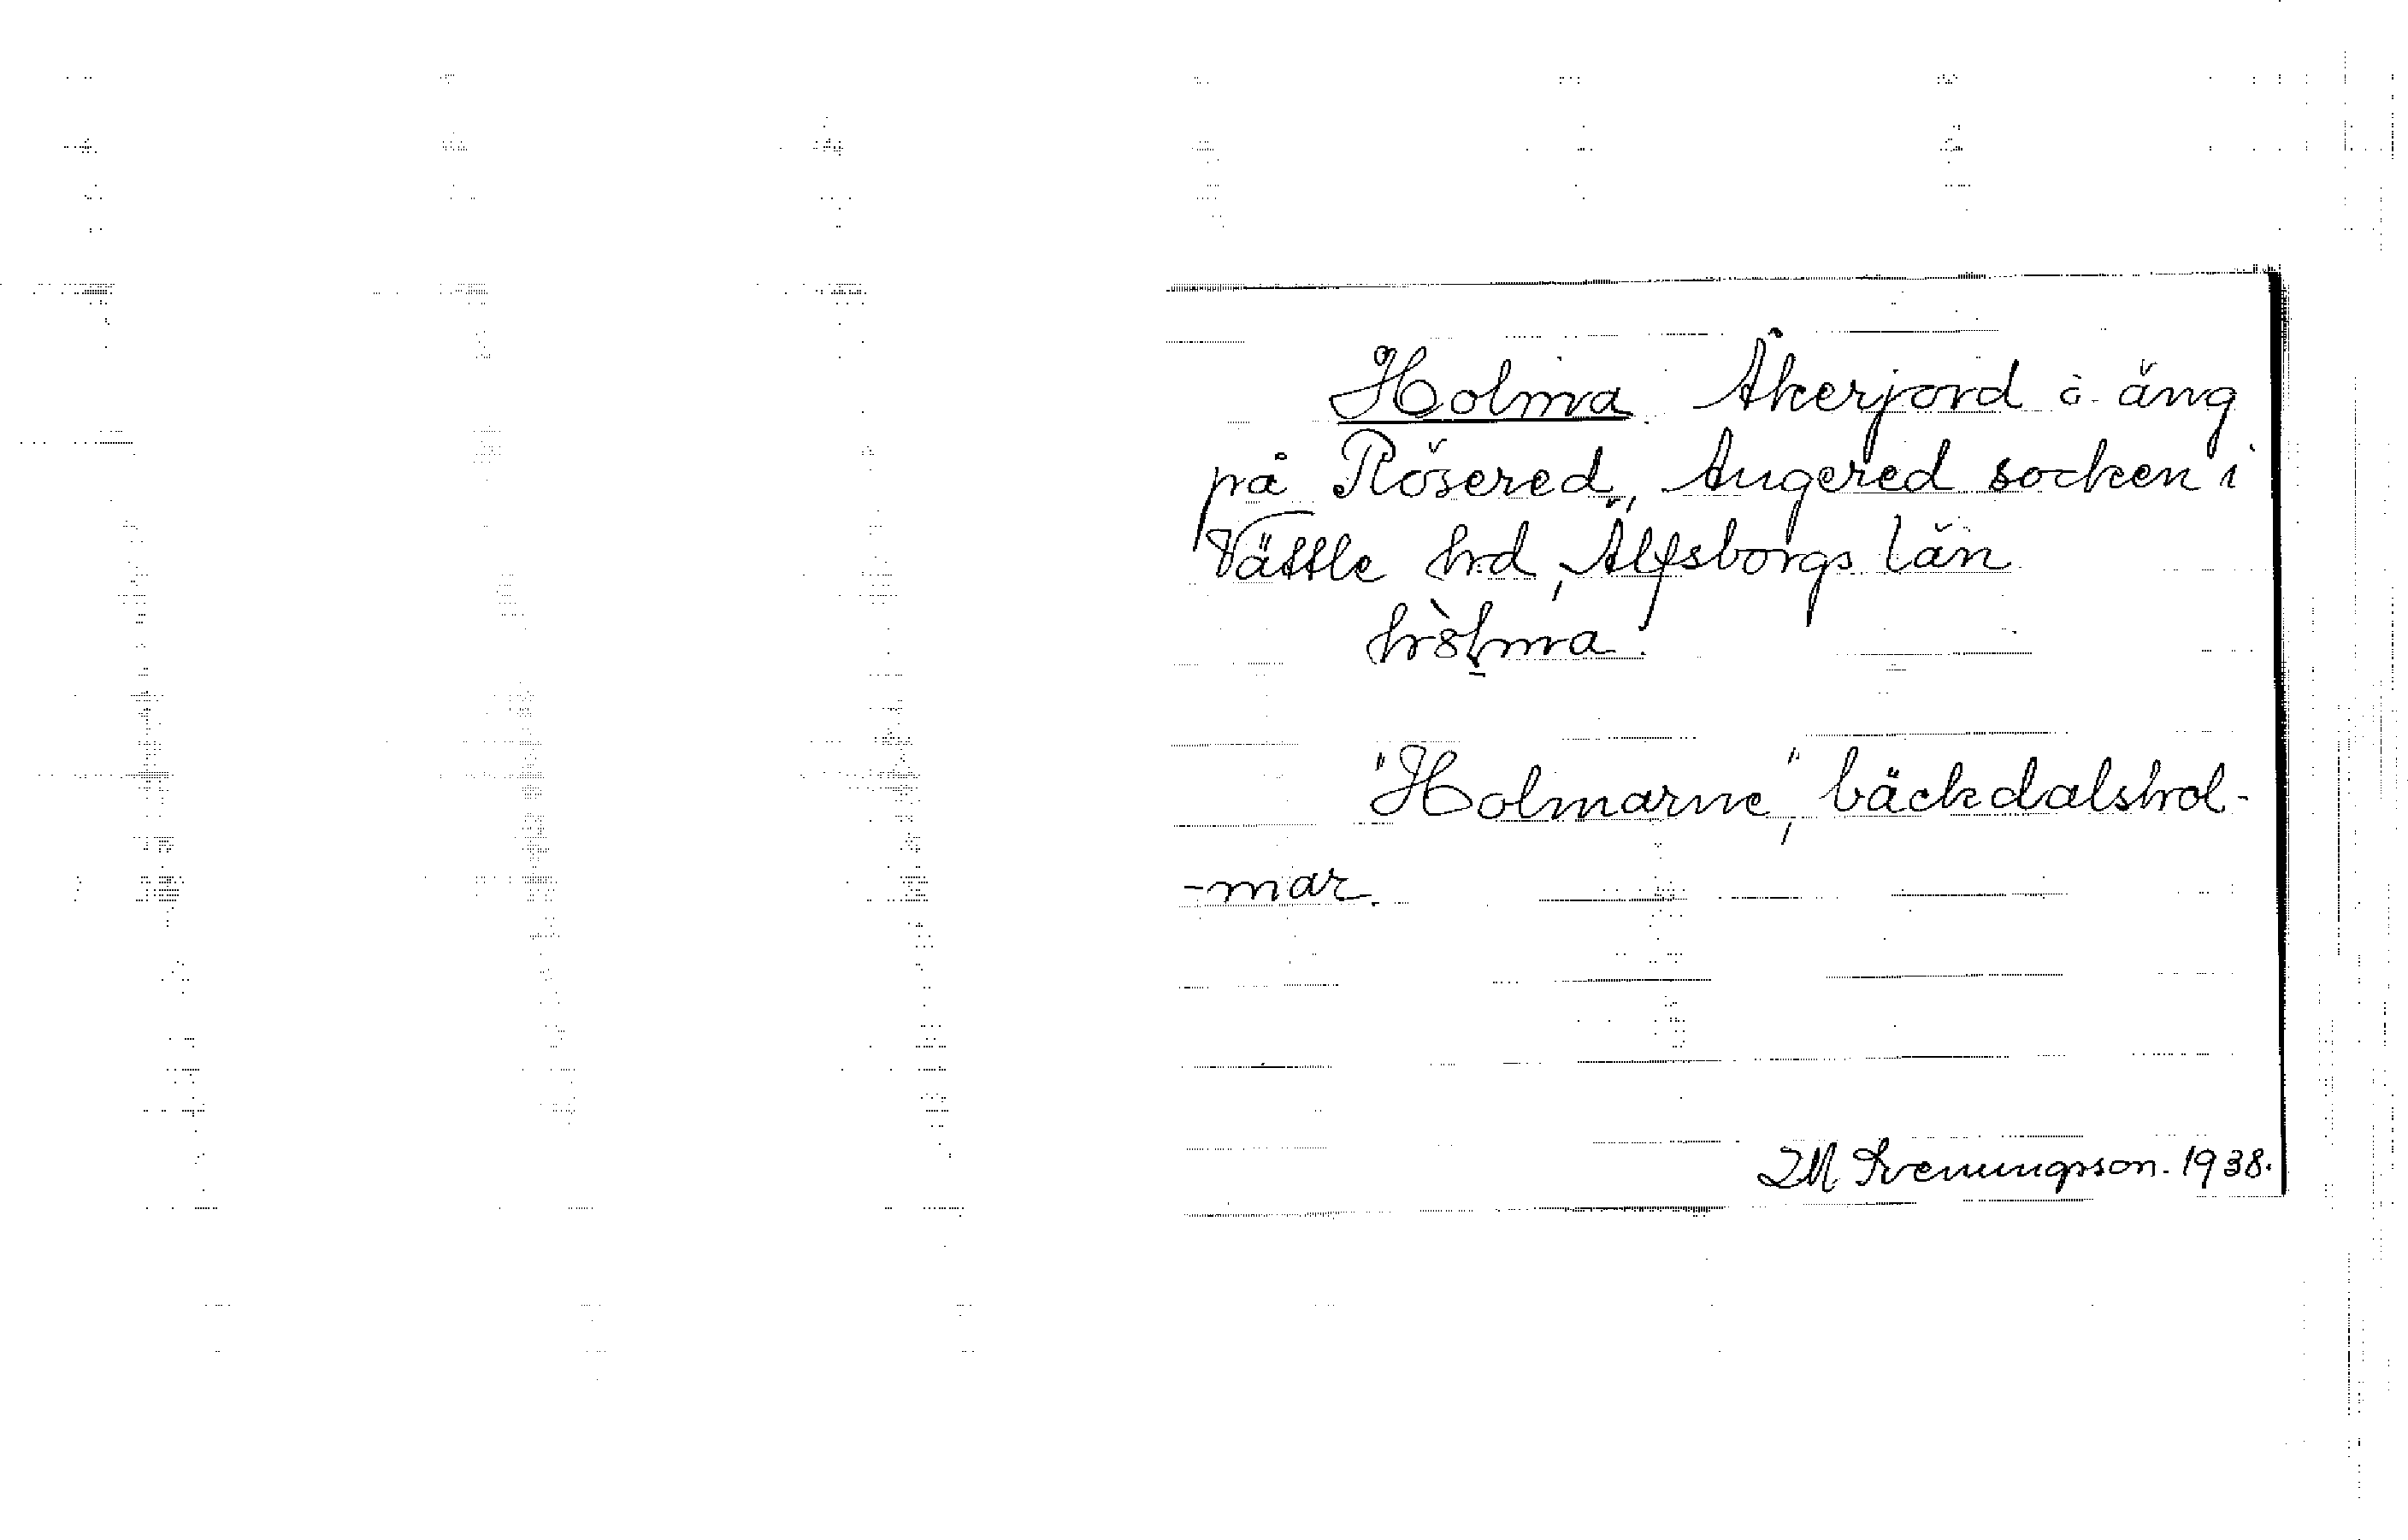 Holma Åkerjord o. äng
på Rösered, Angered socken i
Vättle hrd, Älfsborgs län
"Holmarne", bäckdalshol-
-mar.
IM Svenungsson. 1938.